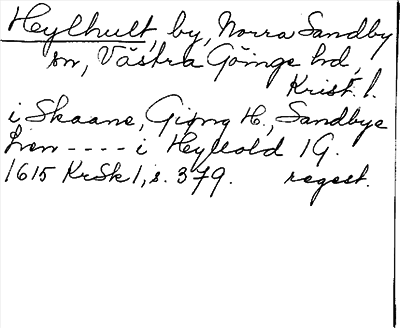 Heylhult, by, Norra Sandby
sn, Västra Göinge hd,
Krist. l.
i Skaane, Giøng H., Sandbye
Sogn ---- i Heyllold 1 G.
1615 KrSk 1, s. 379. regest.